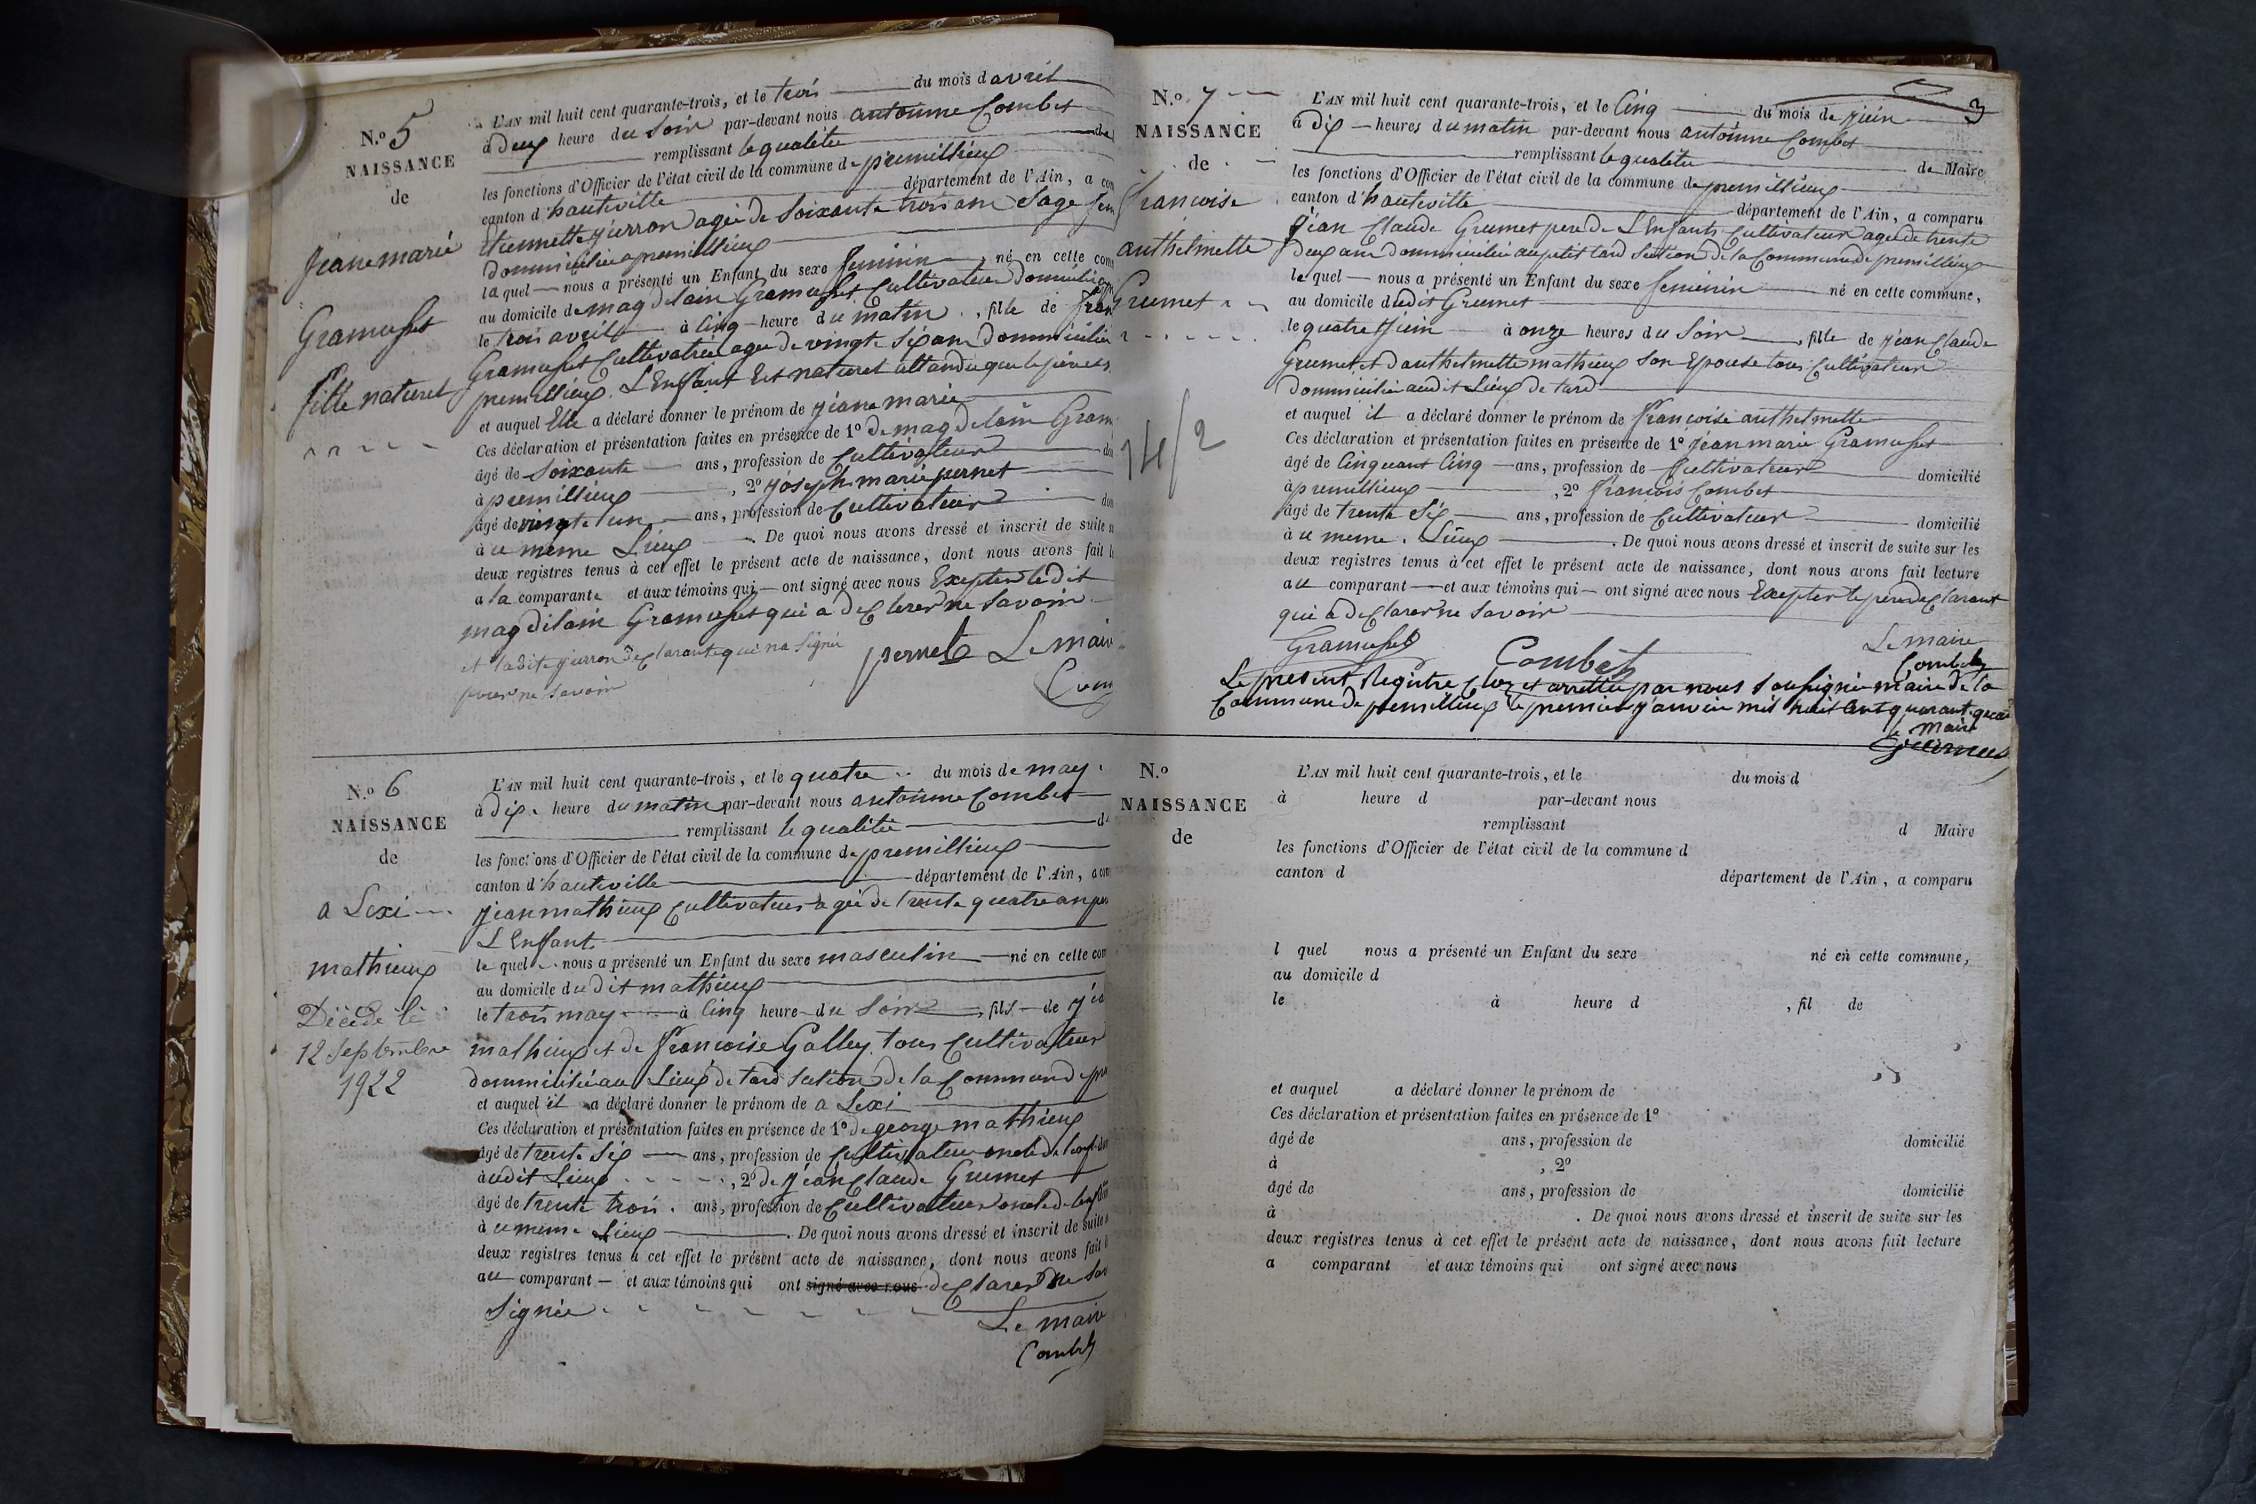 N.o 5
NAISSANCE
de
jeane marie
Gramusset
fille naturel
L'AN mil huit cent quarante-trois, et le trois du mois d avril
à deux heure du soir par-devant nous antoinne Combet
remplissant le qualitée de
les fonctions d'Officier de l'état civil de la commune de premillieux
canton d'hauteville département de l'Ain, a com
Etiennette jurron agée de soixante trois ans sage fem
dommiciliee a premillieux
la quel nous a présenté un Enfant du sexe feminin né en cette com
au domicile de magdelain Gramusset Cultivateur domicilié
le trois avril à Cinq heure du matin, fille de fran
Gramusset Cultivatrice agee de vingt six ans dommicilier
premillieux. L'Enfant Est naturel attandu que le père est
et auquel Elle a déclaré donner le prénom de jeane marie
Ces déclaration et présentation faites en présence de 1o de magdelain Gram
âgé de soixante ans, profession de Cultivateur do
à premillieux, 2o joseph marie pernet
âgé de vingt et un ans, profession de Cultivateur dom
à u meme Lieux. De quoi nous avons dressé et inscrit de suite s
deux registres tenus à cet effet le présent acte de naissance, dont nous avons fait l
a la comparante et aux témoins qui ont signé avec nous Exepter le dit
magdelain Gramusset qui a declarer ne savoir
et ladite jurron declarante qui na signée
pour ne savoir
pernet Le maire
Com
N.o 6
NAISSANCE
de
a Lexi
mathieux
Décédé le
12 septembre
1922
L'AN mil huit cent quarante-trois, et le quatre du mois de may
à dix heure du matin par-devant nous antoinne Combet
remplissant le qualitée d
les fonctions d'Officier de l'état civil de la commune de premillieux
canton d'hauteville département de l'Ain, a com
jean mathieux Cultivateur agée de trente quatre an per
L'Enfant
le quel nous a présenté un Enfant du sexe masculin né en cette com
au domicile du dit mathieux
le trois may à Cinq heure du soir, fils de jea
mathieux et de francoise Galley tous Cultivateur
dommicilié au Lieux de tard section de la Commune de pre
et auquel il a déclaré donner le prénom de a Lexi
Ces déclaration et présentation faites en présence de 1o de george mathieux
âgé de trente six ans, profession de Cultivateur oncle de l'enft dom
à udit Lieux, 2o de jean Claude Grumet
âgé de trente trois ans, profession de Cultivateur oncle de
à u meme Lieux. De quoi nous avons dressé et inscrit de suite s
deux registres tenus à cet effet le présent acte de naissance, dont nous avons fait l
au comparant et aux témoins qui ont signé avec nous declarer ne sav
signée
Le maire
Combet
3
N.o 7
NAISSANCE
de
francoise
anthelmette
Grumet
14/2
L'AN mil huit cent quarante-trois, et le Cinq du mois de juin
à dix heures du matin par-devant nous antoinne Combet
remplissant le qualitée de Maire
les fonctions d'Officier de l'état civil de la commune de premillieux
canton d'hauteville département de l'Ain, a comparu
jean Claude Grumet pere de L'Enfants Cultivateur agee de trente
deux ans dommicilié au petit tard section de la Commune de premillieux
le quel nous a présenté un Enfant du sexe feminin né en cette commune,
au domicile dudit Grumet
le quatre juin à onze heures du soir, fille de jean Claude
Grumet et d'anthelmette mathieux son Epouse tous Cultivateur
dommicilié audit Lieux de tard
et auquel il a déclaré donner le prénom de francoise anthelmette
Ces déclaration et présentation faites en présence de 1o jean marie Gramusset
âgé de Cinquant Cinq ans, profession de Cultivateur domicilié
à premillieux, 2o francois Combet
âgé de trente six ans, profession de Cultivateur domicilié
à u meme Lieux. De quoi nous avons dressé et inscrit de suite sur les
deux registres tenus à cet effet le présent acte de naissance, dont nous avons fait lecture
au comparant et aux témoins qui ont signé avec nous Exepter le pere declarant
qui a declarer ne savoir
Gramusset Combet Le maire
Combet
Le present Registre Clos et arrettée par nous soussignée maire de la
Commune de premillieux le premier janvier mil huit Cent quarant quat
le Maire
N.o
NAISSANCE
de
L'AN mil huit cent quarante-trois, et le du mois d
à heure d par-devant nous
remplissant d Maire
les fonctions d'Officier de l'état civil de la commune d
canton d département de l'Ain, a comparu
l quel nous a présenté un Enfant du sexe né en cette commune,
au domicile d
le à heure d , fil de
et auquel a déclaré donner le prénom de
Ces déclaration et présentation faites en présence de 1o
âgé de ans, profession de domicilié
à , 2o
âgé de ans, profession de domicilié
à . De quoi nous avons dressé et inscrit de suite sur les
deux registres tenus à cet effet le présent acte de naissance, dont nous avons fait lecture
a comparant et aux témoins qui ont signé avec nous